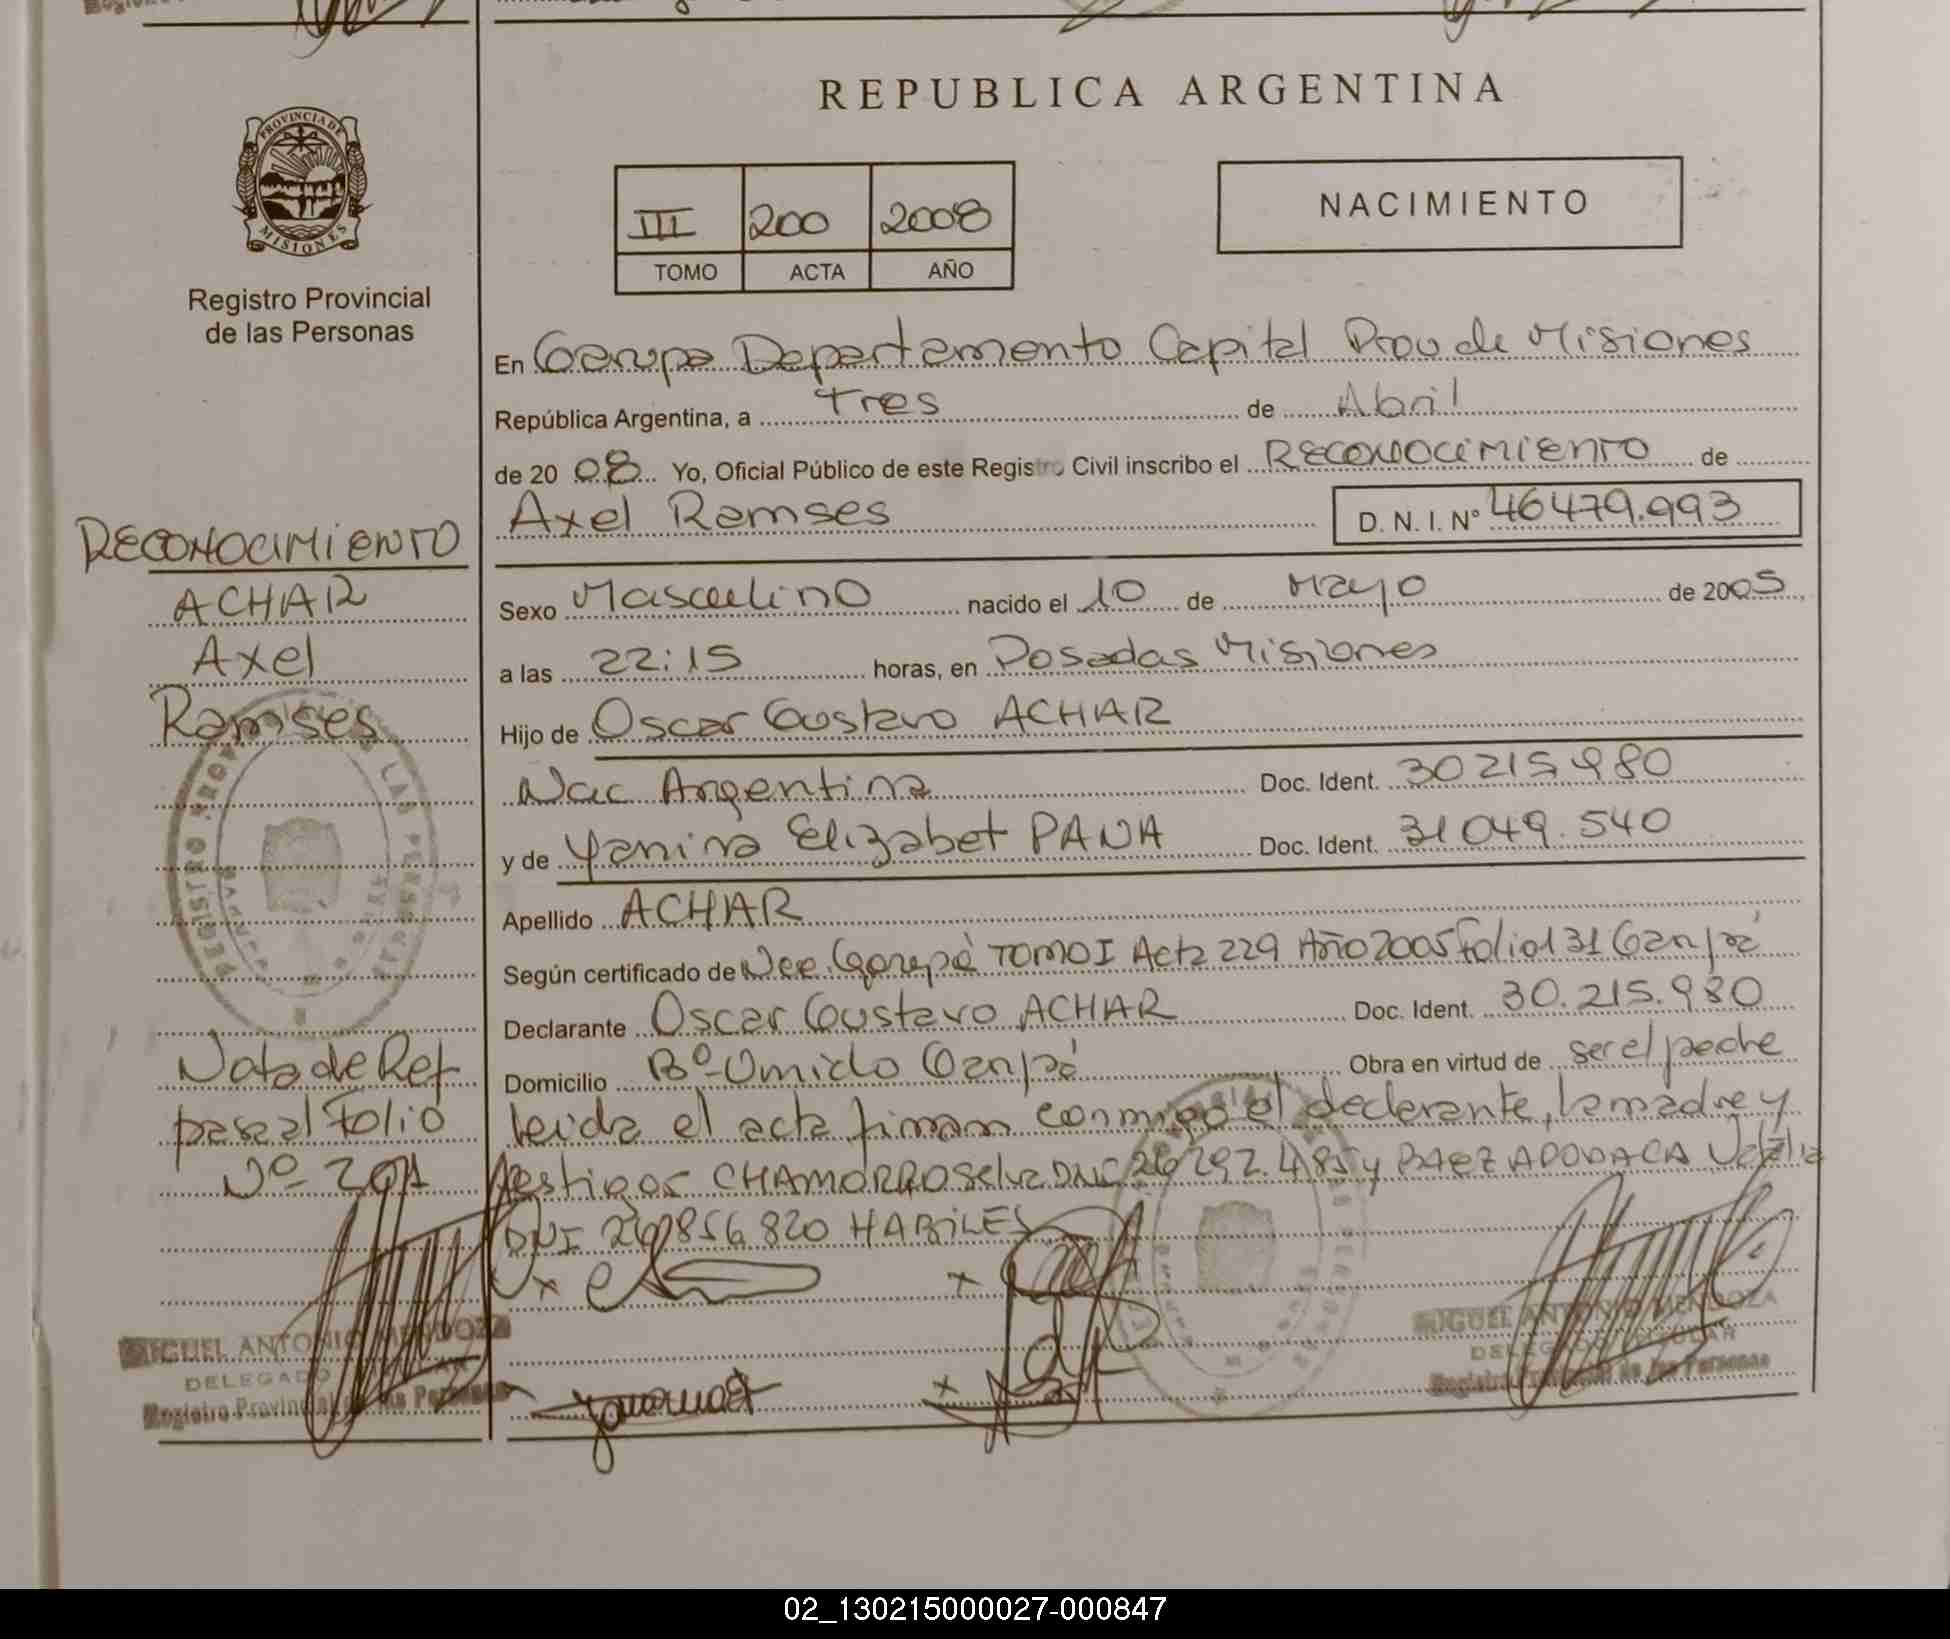 PROVINCIA DE
MISIONES
Registro Provincial
de las Personas
RECONOCIMIENTO
ACHAR
Axel
Ramses
Nota de Ref
pasa al Folio
Nº 201
MIGUEL ANTONIO MENDOZA
DELEGADO
Registro Provincial de las Personas
REPUBLICA ARGENTINA
III 200 2008
TOMO ACTA AÑO
NACIMIENTO
En Garupa Departamento Capital Prov de Misiones
República Argentina, a tres de Abril
de 20 08 Yo, Oficial Público de este Registro Civil inscribo el Reconocimiento de
Axel Ramses D. N. I. Nº 46479.993
Sexo Masculino nacido el 10 de Mayo de 2005
a las 22:15 horas, en Posadas Misiones
Hijo de Oscar Gustavo ACHAR
Nac Argentina Doc. Ident. 30215980
y de Yanina Elizabet PANA Doc. Ident. 31049.540
Apellido ACHAR
Según certificado de Garupá TOMO I Acta 229 Año 2005 Folio 131 Garupá
Declarante Oscar Gustavo ACHAR Doc. Ident. 30.215.980
Domicilio Bº Garupá Obra en virtud de ser el padre
leida el acta firman conmigo el declarante, la madre y
testigos CHAMORRO Selva DNI 26292.485 y PAEZ APODACA
DNI 856.820 HABILES
MIGUEL ANTONIO MENDOZA
DELEGADO TITULAR
Registro Provincial de las Personas
02_130215000027-000847